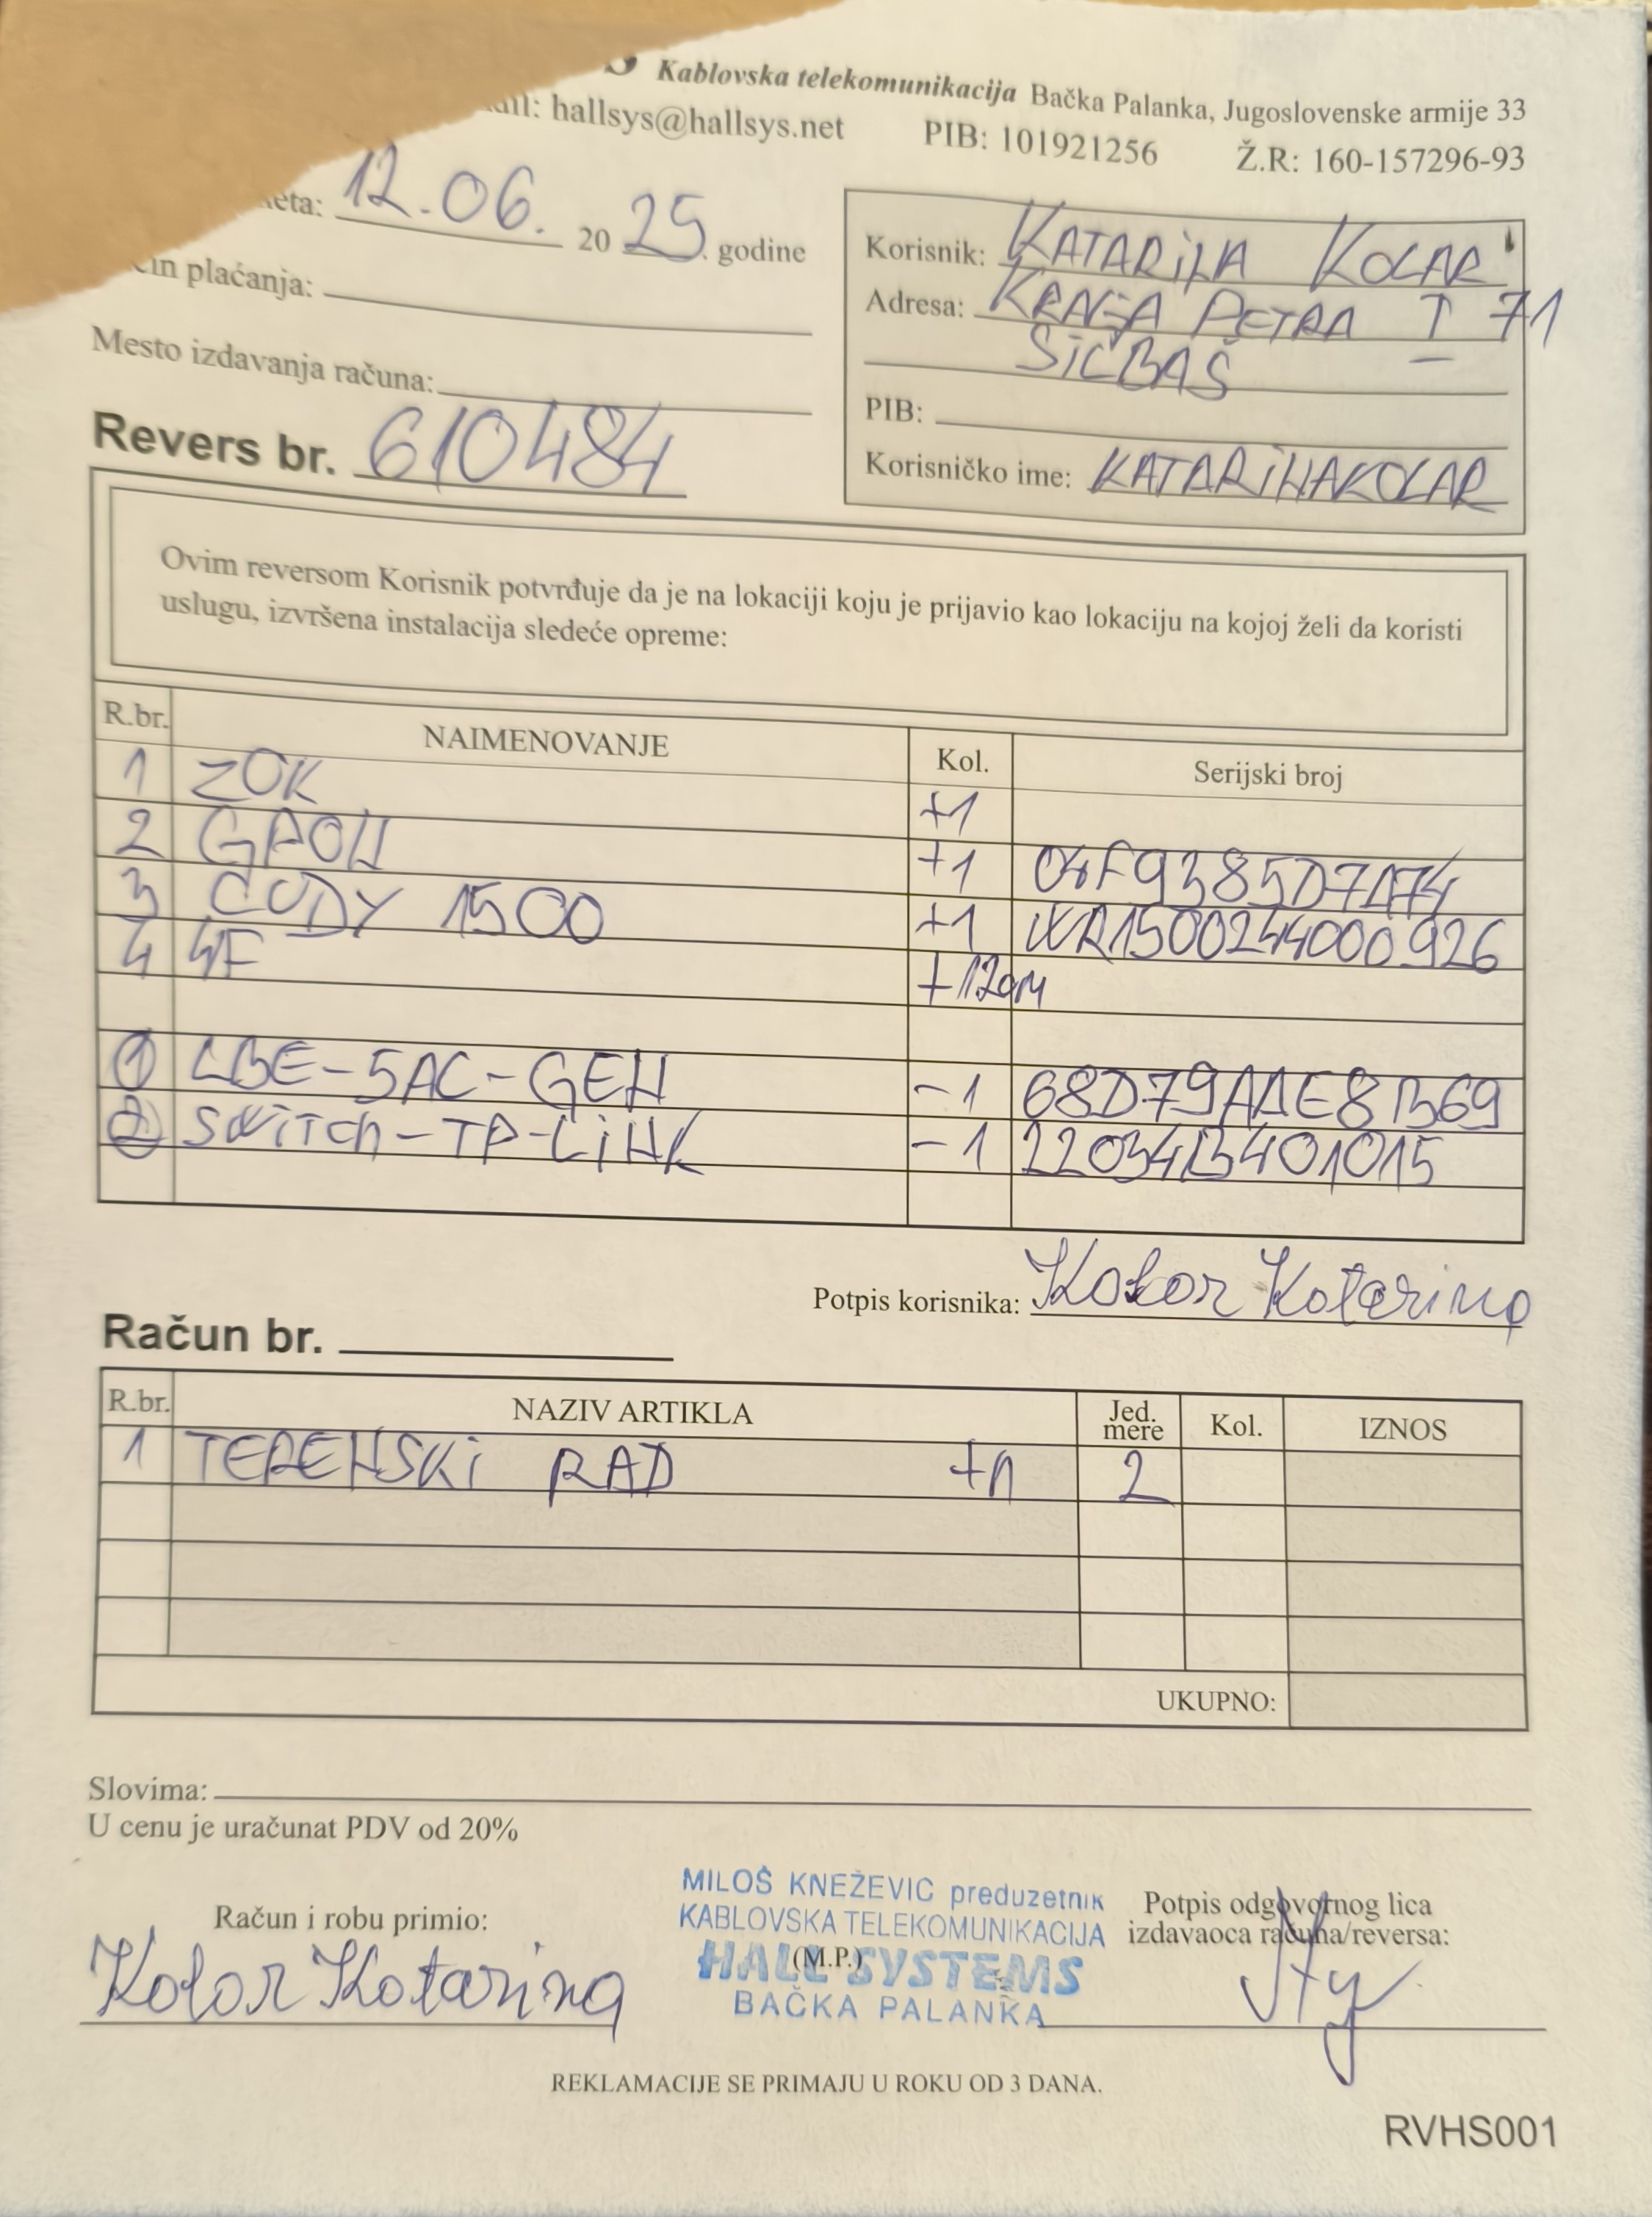 Kablovska telekomunikacija Bačka Palanka, Jugoslovenske armije 33
hallsys@hallsys.net PIB: 101921256 Ž.R: 160-157296-93
12.06. 2025. godine
plaćanja:
Mesto izdavanja računa:
Revers br. 610484
Korisnik: KATARINA KOLAR
Adresa: KRALJA PETRA I 71
SILBAŠ
PIB:
Korisničko ime: KATARINAKOLAR
Ovim reversom Korisnik potvrđuje da je na lokaciji koju je prijavio kao lokaciju na kojoj želi da koristi
uslugu, izvršena instalacija sledeće opreme:
R.br. NAIMENOVANJE Kol. Serijski broj
1 ZOK +1
2 GPON +1
3 CUDY 1500 +1 WR1500244000926
4 4F +120m
1 LBE-5AC-GEN -1 68D79AAE8B69
2 SWITCH-TP-LINK -1 22034B401015
Potpis korisnika: Kolar Katarina
Račun br.
R.br. NAZIV ARTIKLA Jed. mere Kol. IZNOS
1 TERENSKI RAD +1 2
UKUPNO:
Slovima:
U cenu je uračunat PDV od 20%
Računi robu primio:
Kolar Katarina
MILOŠ KNEŽEVIĆ preduzetnik
KABLOVSKA TELEKOMUNIKACIJA
(M.P.)
HALL SYSTEMS
BAČKA PALANKA
Potpis odgovornog lica
izdavaoca računa/reversa:
REKLAMACIJE SE PRIMAJU U ROKU OD 3 DANA.
RVHS001